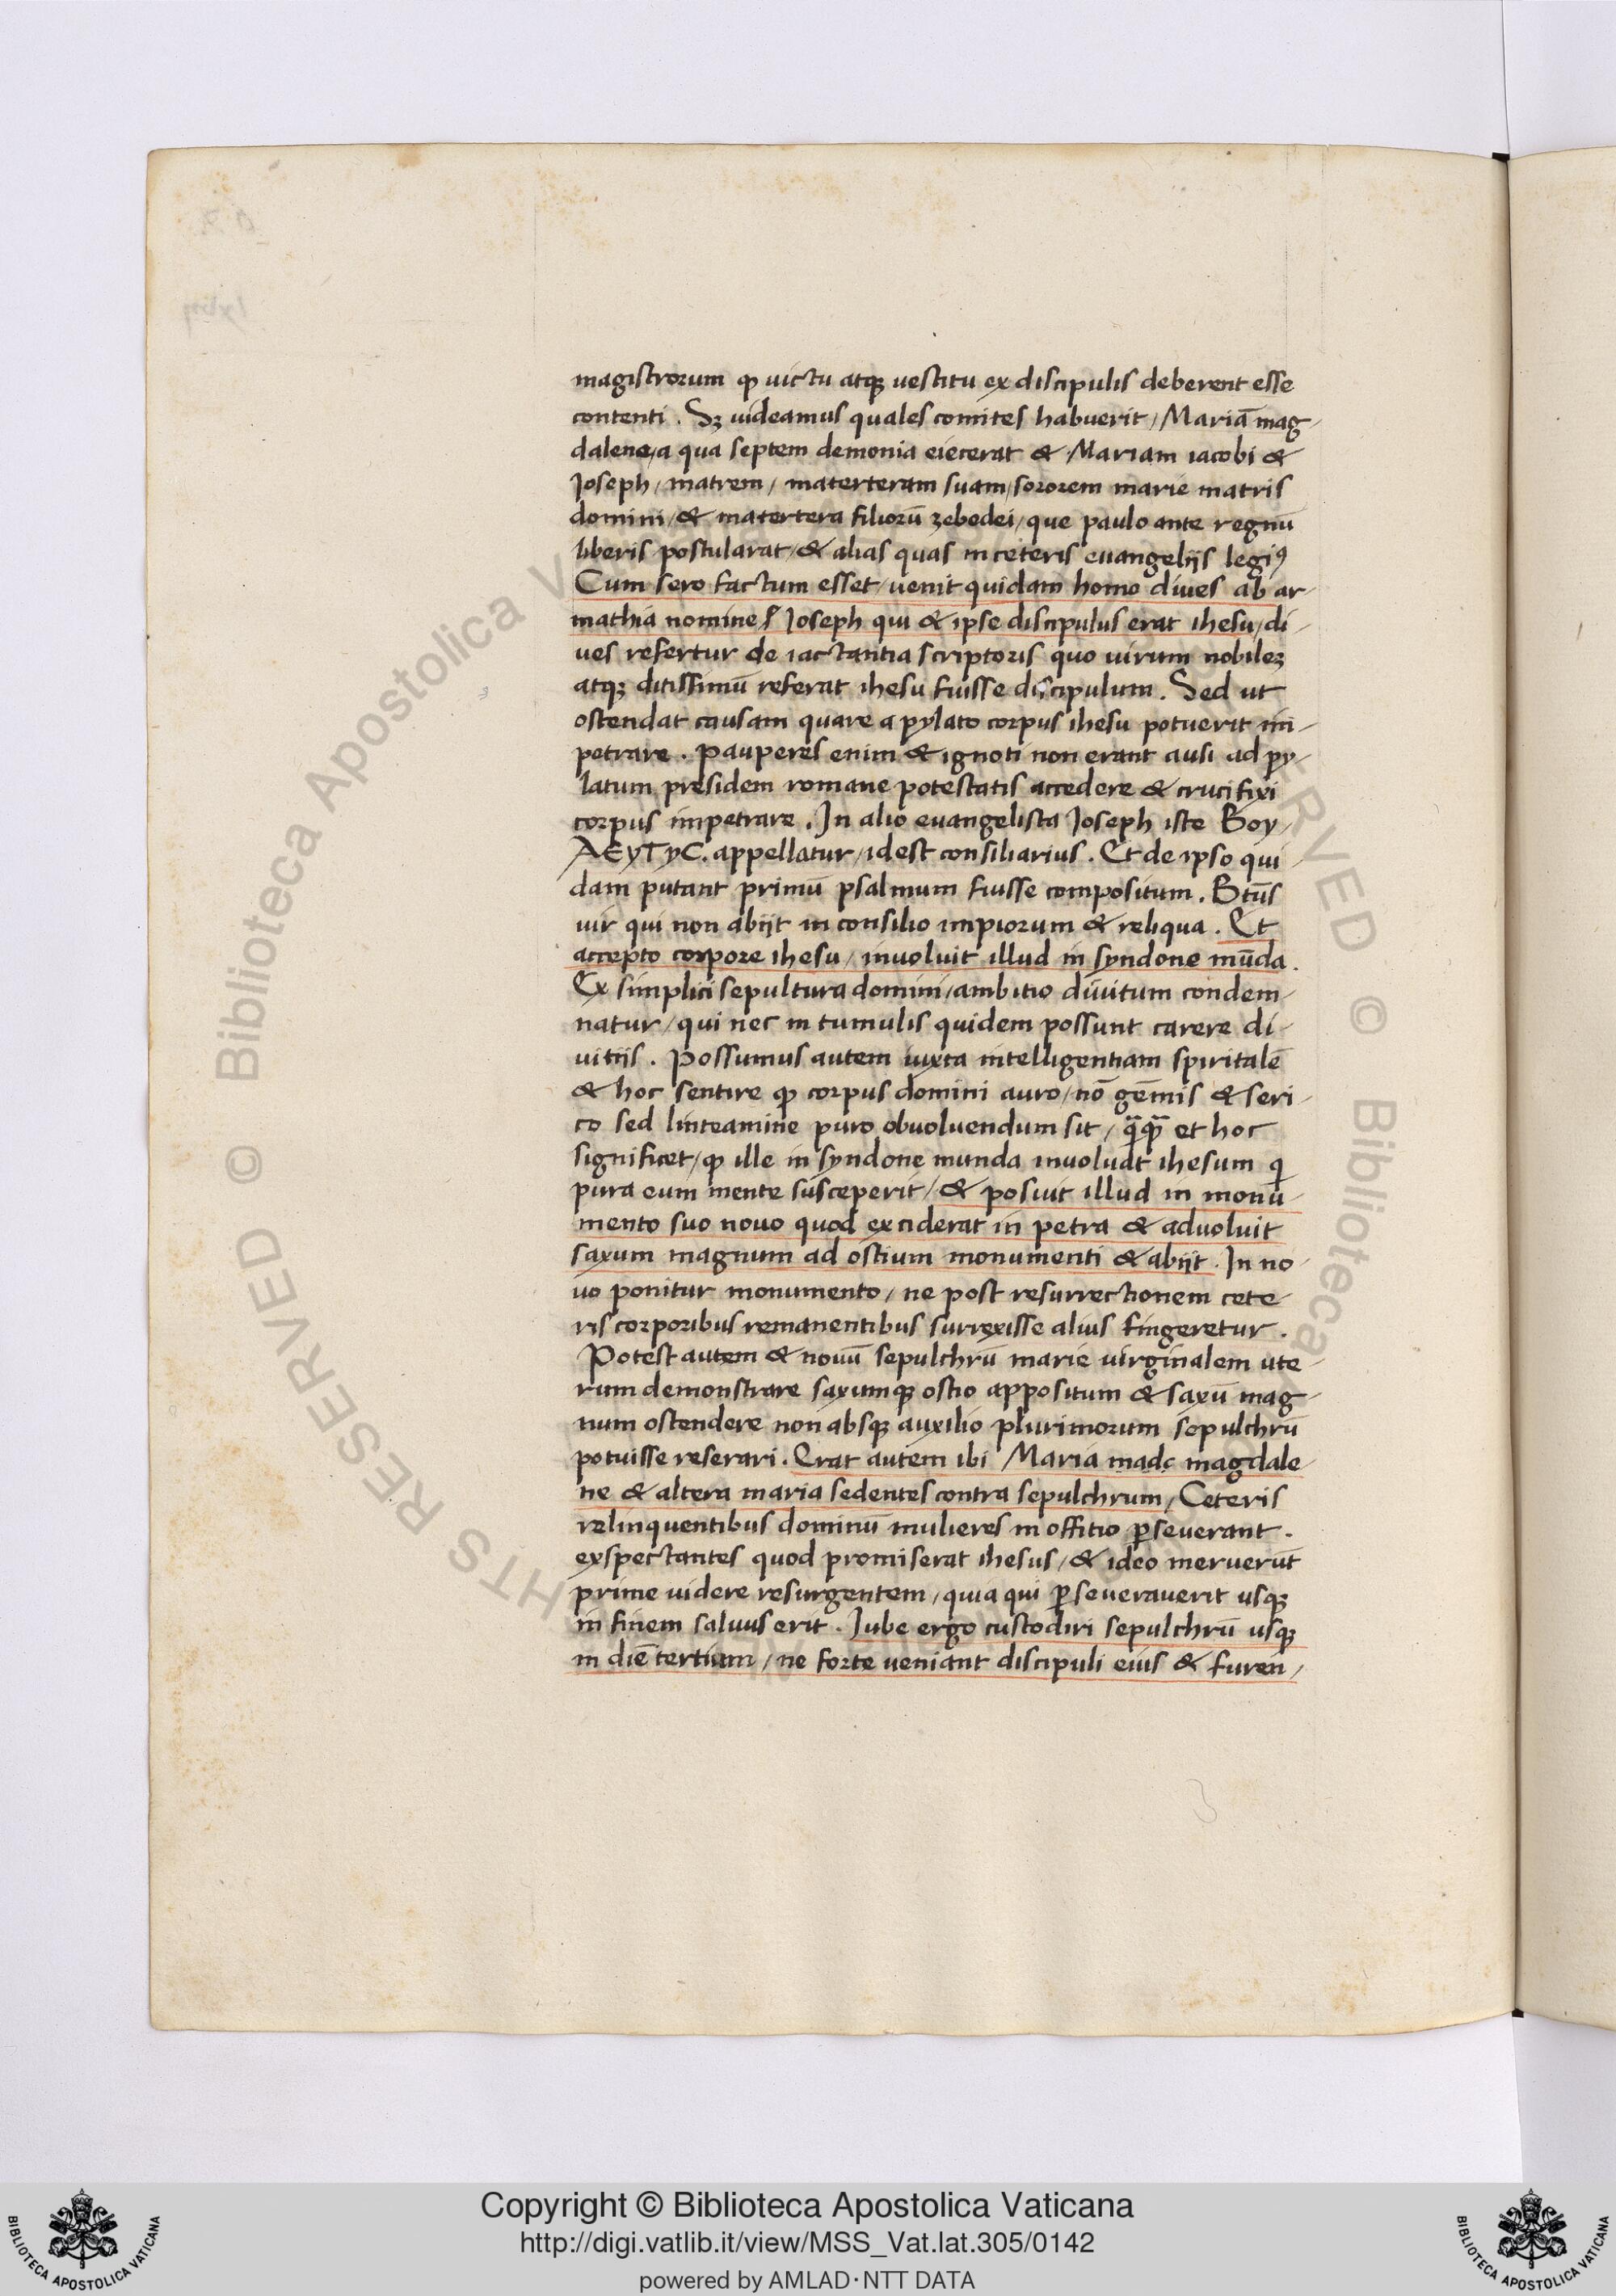 magistrorum ꝙ uictu atqꝫ uestitu ex discipulis deberent esse
contenti. Sꝫ uideamus quales comites habuerit / Mariā mag-
dalene / a qua septem demonia eiecerat & Mariam iacobi &
Joseph / matrem / materteram suam / sororem marie matris
domini / & matertera filiorū zebedei / que paulo ante regnū
liberis postularat / & alias quas in ceteris euangelijs legiꝰ
Cum sero factum esset / uenit quidam homo diues ab ar-
mathia nomine Joseph qui & ipse discipulus erat ihesu / di-
ues refertur de iactantia scriptoris quo uirum nobileꝫ
atqꝫ ditissimū referat ihesu fuisse discipulum. Sed ut
ostendat causam quare a pylato corpus ihesu potuerit im-
petrare. Pauperes enim & ignoti non erant ausi ad py-
latum presidem romane potestatis accedere & crucifixi
corpus impetrare. In alio euangelista Joseph iste Boy-
ΛEyTyC. appellatur / idest consiliarius. Et de ipso qui-
dam putant primū psalmum fuisse compositum. Btūs
uir qui non abijt in consilio impiorum & reliqua. Et
accepto corpore ihesu / inuoluit illud in syndone mūda.
Ex simplici sepultura domini / ambitio diuitum condem-
natur / qui nec in tumulis quidem possunt carere di-
uitijs. Possumus autem iuxta intelligentiam spiritalē
& hoc sentire ꝙ corpus domini auro / nō gēmis & seri-
co sed linteamine puro obuoluendum sit / q̄q̄ et hoc
significet / ꝙ ille in syndone munda inuoluat ihesum q
pura eum mente susceperit / & posuit illud in monu-
mento suo nouo quod exciderat in petra & aduoluit
saxum magnum ad ostium monumenti & abijt. In no-
uo ponitur monumento / ne post resurrectionem cete-
ris corporibus remanentibus surrexisse alius fingeretur.
Potest autem & nouū sepulchrū marie uirginalem ute-
rum demonstrare saxumqꝫ ostio appositum & saxū mag-
num ostendere non absqꝫ auxilio plurimorum sepulchrū
potuisse reserari. Erat autem ibi Maria madc magdale-
ne & altera maria sedentes contra sepulchrum / Ceteris
relinquentibus dominū mulieres in offitio ꝑseuerant.
exspectantes quod promiserat ihesus / & ideo meruerūt
prime uidere resurgentem / quia qui ꝑseuerauerit usqꝫ
in finem saluus erit. Iube ergo custodiri sepulchrū usqꝫ
in diē tertium / ne forte ueniant discipuli eius & furen /
Copyright © Biblioteca Apostolica Vaticana
http://digi.vatlib.it/view/MSS_Vat.lat.305/0142
powered by AMLAD·NTT DATA
BIBLIOTECA APOSTOLICA VATICANA
BIBLIOTECA APOSTOLICA VATICANA